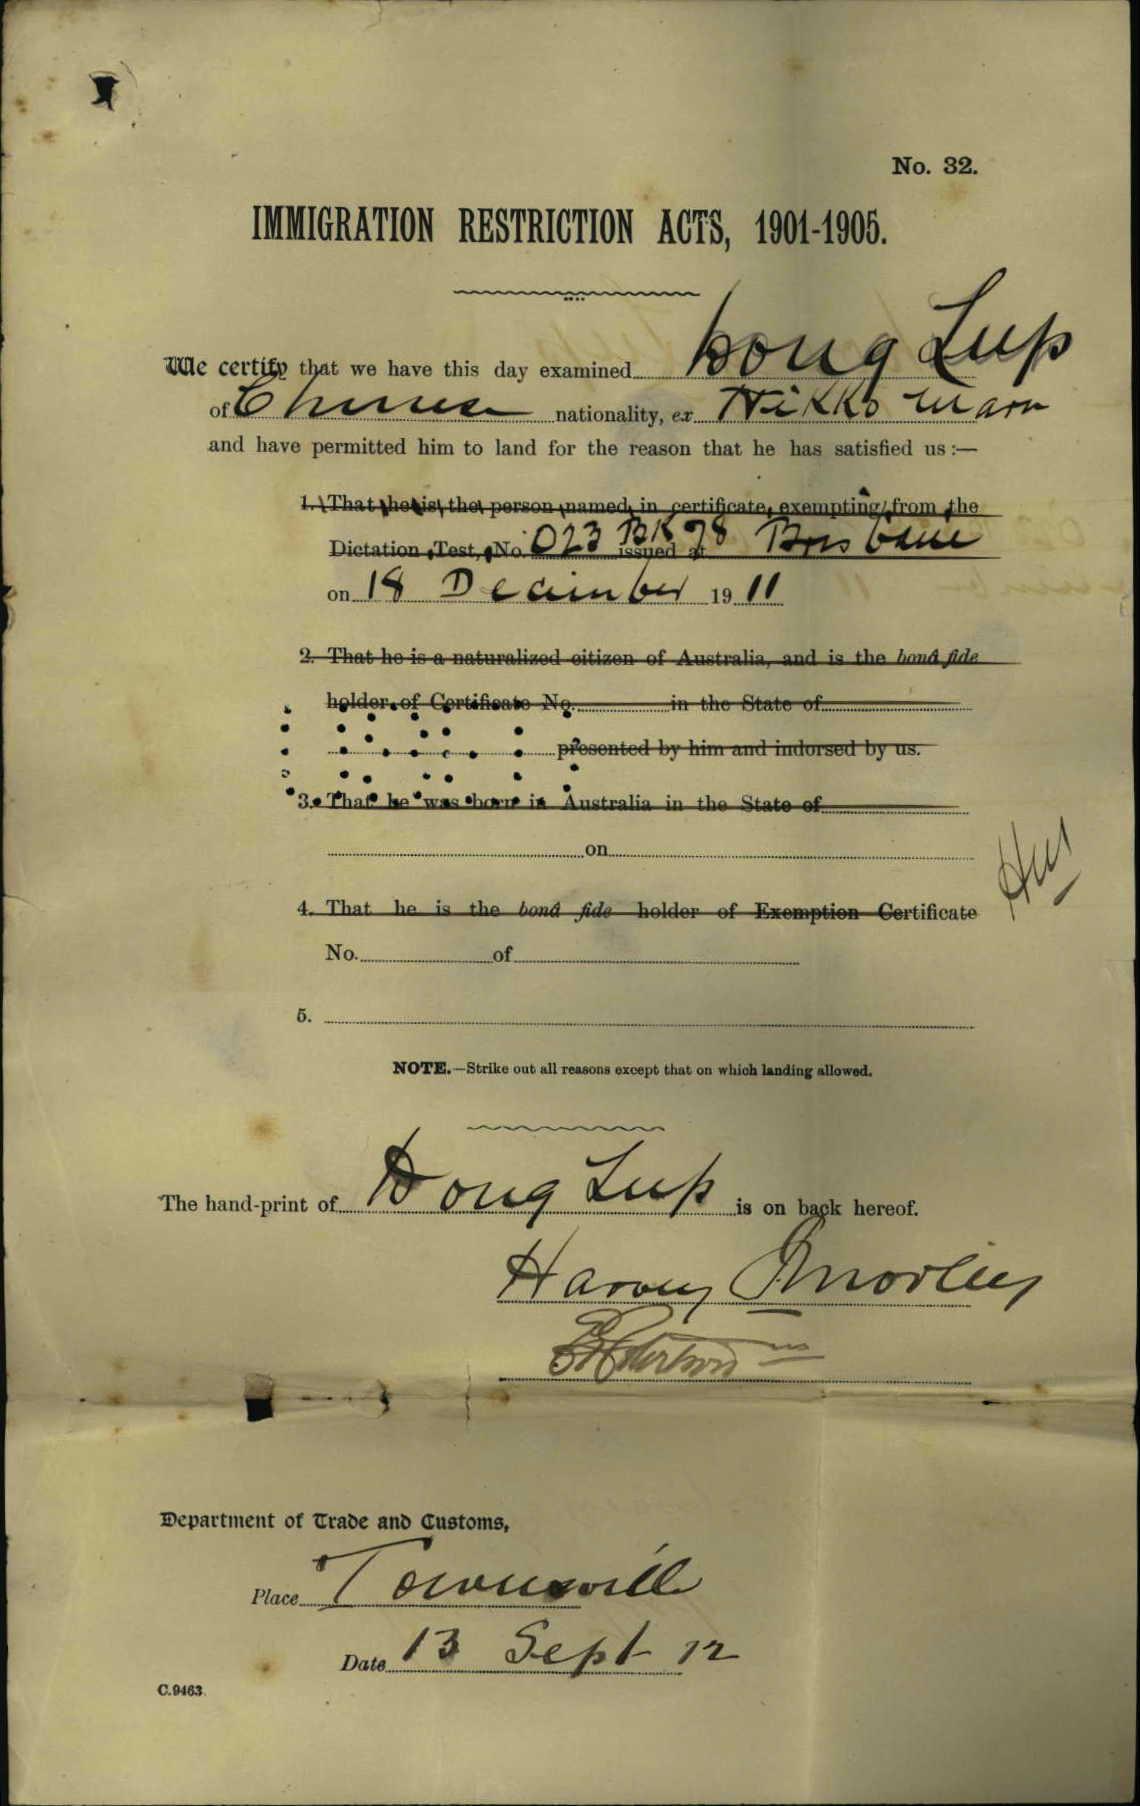 No. 32.
IMMIGRATION RESTRICTION ACTS, 1901-1905.
We certify that we have this day examined Doug Lup
of Chinese nationality, ex Nikko Maru
and have permitted him to land for the reason that he has satisfied us :—
1. That he is the person named in certificate, exempting from the
Dictation Test, No. 023 BK 78 issued at Brisbane
on 18 December 1911
2. That he is a naturalized citizen of Australia, and is the bonâ fide
holder of Certificate No. in the State of
presented by him and indorsed by us.
3. That he was born in Australia in the State of
on
4. That he is the bonâ fide holder of Exemption Certificate
No. of
5.
NOTE.—Strike out all reasons except that on which landing allowed.
The hand-print of Doug Lup is on back hereof.
Harvey Morley
Department of Trade and Customs,
Place Townsville
Date 13 Sept 12
C.9463.